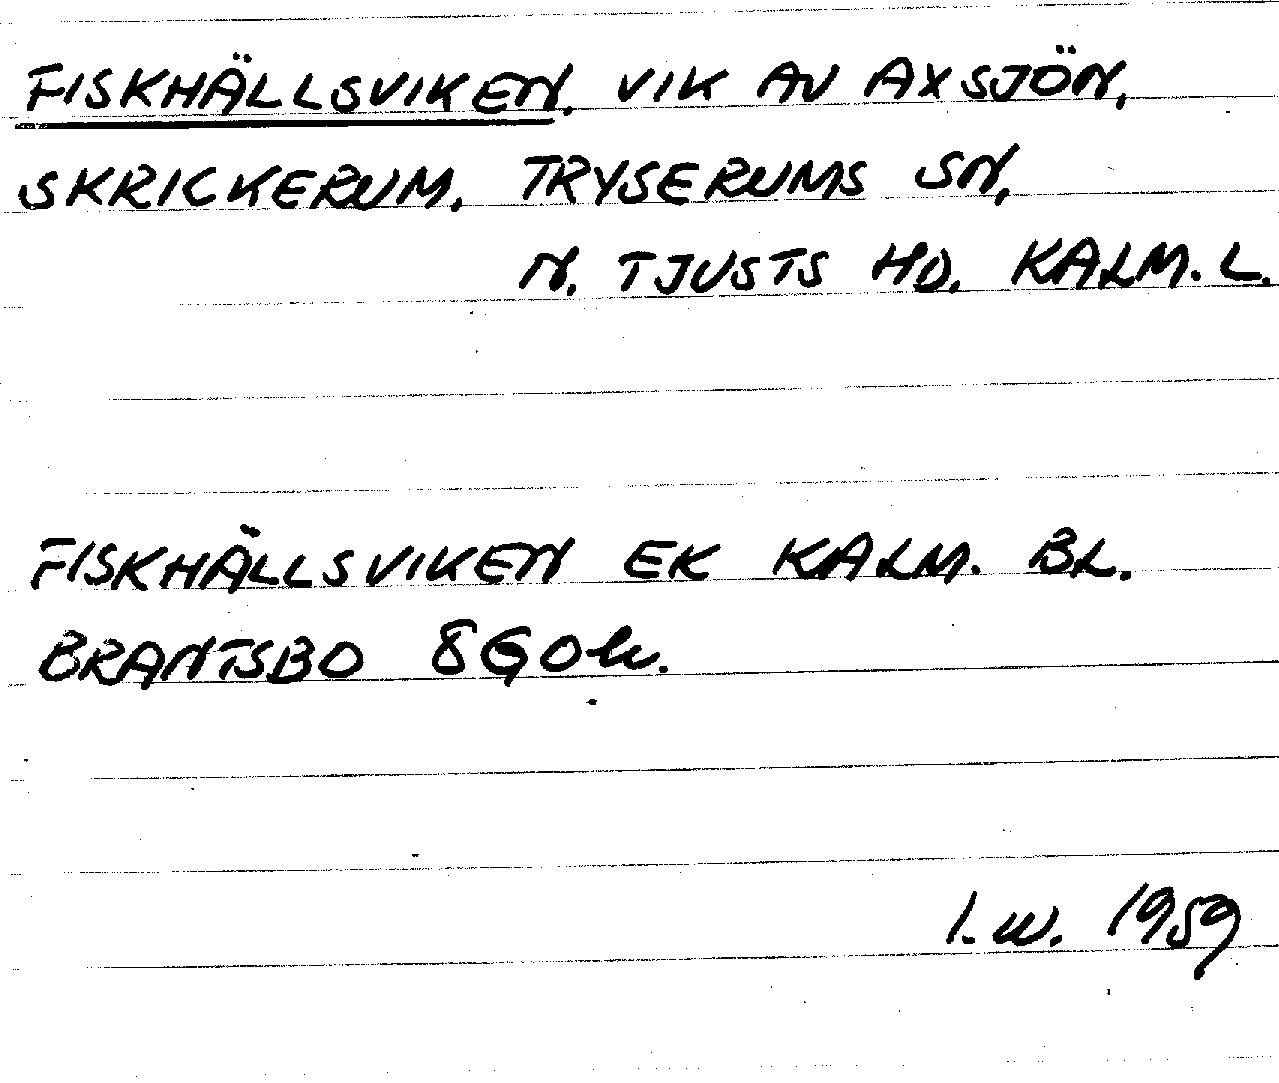 FISKHÄLLSVIKEN, VIK AV AXSJÖN,
SKRICKERUM, TRYSERUMS SN,
N. TJUSTS HD. KALM. L.
FISKHÄLLSVIKEN EK KALM. BL.
BRANTSBO 8G0h.
I.W. 1959